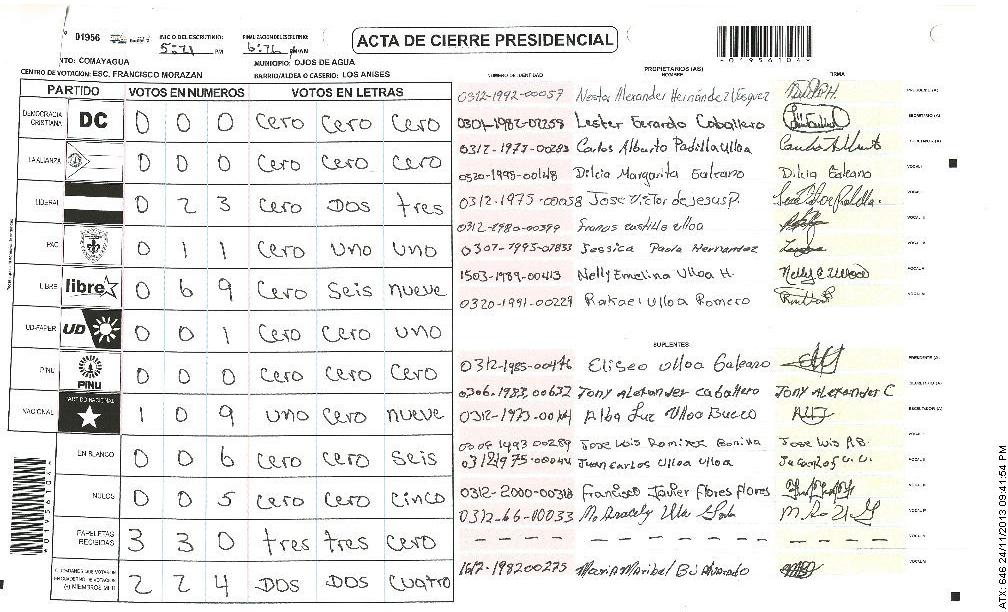 01956 INICIO DEL ESCRUTINIO: 5:21 PM FINALIZACION DEL ESCRUTINIO:
ACTA DE CIERRE PRESIDENCIAL
*01956104*
NTO: COMAYAGUA MUNICIPIO: OJOS DE AGUA
CENTRO DE VOTACION: ESC. FRANCISCO MORAZAN BARRIO/ALDEA O CASERIO: LOS ANISES
NUMERO DE IDENTIDAD PROPIETARIOS (AS) NOMBRE FIRMA
PARTIDO VOTOS EN NUMEROS VOTOS EN LETRAS
DEMOCRACIA CRISTIANA DC 0 0 0 Cero Cero Cero
LA ALIANZA 0 0 0 Cero Cero Cero
LIBERAL 0 2 3 Cero Dos tres
PAC 0 1 1 Cero Uno Uno
LIBRE libre 0 6 9 Cero Seis nueve
UD-FAPER UD 0 0 1 Cero Cero uno
PINU PINU 0 0 0 Cero Cero Cero
NACIONAL PARTIDO NACIONAL 1 0 9 uno Cero nueve
EN BLANCO 0 0 6 Cero Cero Seis
NULOS 0 0 5 Cero Cero Cinco
PAPELETAS RECIBIDAS 3 3 0 tres tres Cero
2 2 4 Dos Dos Cuatro
0312-1992-00057 Nestor Alexander Hernández Vásquez PRESIDENTE (A)
0301-1982-02258 Lester Gerardo Caballero SECRETARIO (A)
0312-1977-00283 Carlos Alberto Padilla Ulloa
0320-1995-00148 Dilcia Margarita Galeano Dilcia Galeano
0312-1975-00058 Jose Victor de Jesus P.
0312-1980-00399 Franas castillo ulloa
0307-1995-07833 Jessica Paola Hernandez
1503-1989-00413 Nelly Emelina Ulloa H.
0320-1991-00229 Rafael Ulloa Romero
SUPLENTES
0312-1985-00476 Eliseo ulloa Galeano PRESIDENTE (A)
0306-1983,00632 Tony Alexander caballero Tony Alexander C
0312-1973-00 Alba Luz Ulloa
00289 Jose Luis Ramirez Bonilla Jose Luis R.B.
00044 Juan Carlos Ulloa Ulloa
0312-2000-00318 Francisco Javier Flores flores
0312-66-00033 Aracely
- - - - - - - - - - - - - - - -
00275 Maria Maribel
*01956104*
ATX: 646 24/11/2013 09:41:54 PM